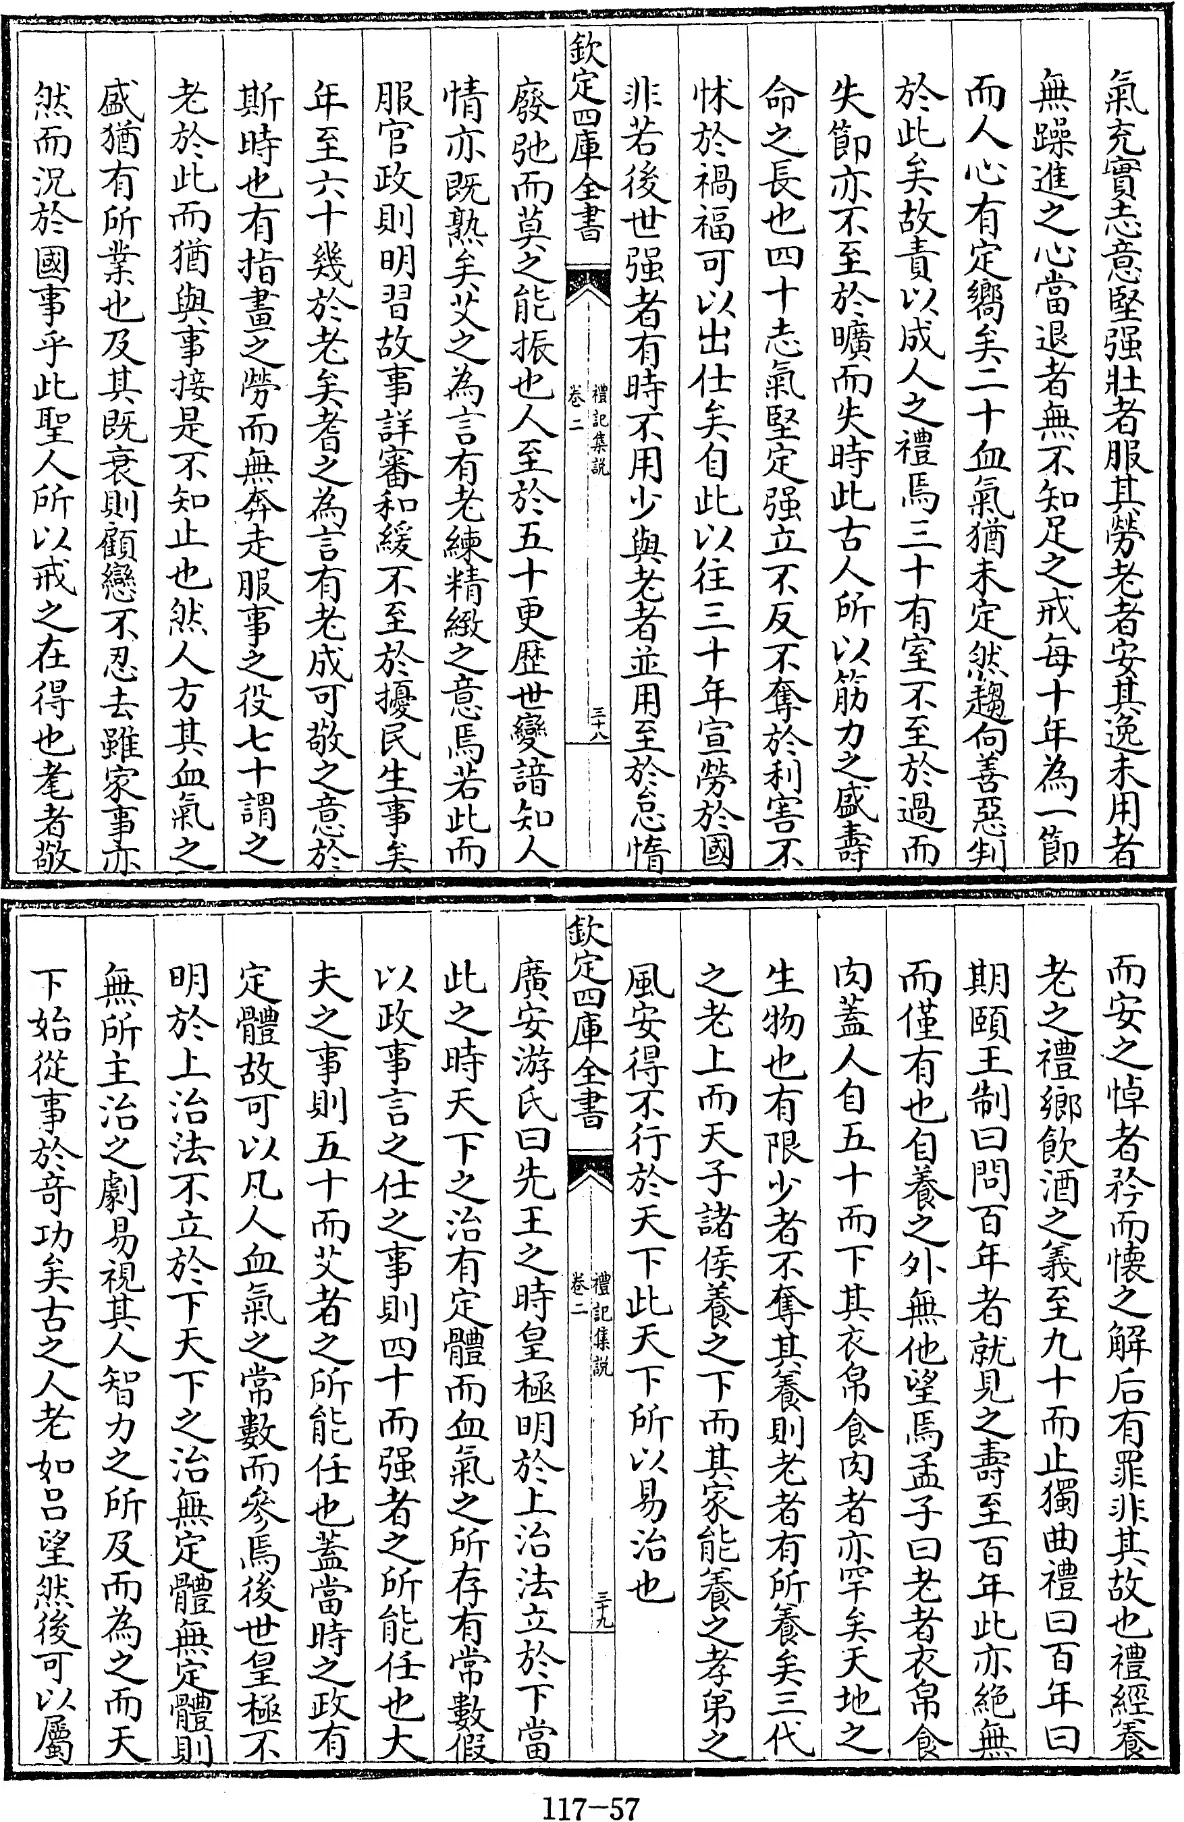 氣充實志意堅强壯者服其勞老者安其逸未用者
無躁進之心當退者無不知足之戒每十年為一節
而人心有定嚮矣二十血氣猶未定然趨向善惡判
於此矣故責以成人之禮焉三十有室不至於過而
失節亦不至於曠而失時此古人所以筋力之盛壽
命之長也四十志氣堅定强立不反不奪於利害不
怵於禍福可以出仕矣自此以往三十年宣勞於國
非若後世强者有時不用少與老者並用至於怠惰
欽定四庫全書
禮記集説
卷二
三十八
廢弛而莫之能振也人至於五十更歴世變諳知人
情亦既熟矣艾之為言有老練精緻之意焉若此而
服官政則明習故事詳審和緩不至於擾民生事矣
年至六十幾於老矣耆之為言有老成可敬之意於
斯時也有指畫之勞而無奔走服事之役七十謂之
老於此而猶與事接是不知止也然人方其血氣之
盛猶有所業也及其既衰則顧戀不忍去雖家事亦
然而況於國事乎此聖人所以戒之在得也耄者敬
而安之悼者矜而懐之解后有罪非其故也禮經養
老之禮鄉飲酒之義至九十而止獨曲禮曰百年曰
期頤王制曰問百年者就見之壽至百年此亦絶無
而僅有也自養之外無他望焉孟子曰老者衣帛食
肉蓋人自五十而下其衣帛食肉者亦罕矣天地之
生物也有限少者不奪其養則老者有所養矣三代
之老上而天子諸侯養之下而其家能養之孝弟之
風安得不行於天下此天下所以易治也
欽定四庫全書
禮記集説
卷二
三十九
廣安游氏曰先王之時皇極明於上治法立於下當
此之時天下之治有定體而血氣之所存有常數假
以政事言之仕之事則四十而强者之所能任也大
夫之事則五十而艾者之所能任也蓋當時之政有
定體故可以凡人血氣之常數而參焉後世皇極不
明於上治法不立於下天下之治無定體無定體則
無所主治之劇易視其人智力之所及而為之而天
下始從事於奇功矣古之人老如呂望然後可以屬
117-57